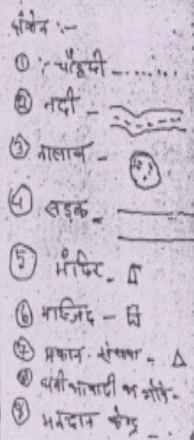 संकेत :-
① :- चौहद्दी - ......
② नदी -
③ तालाब -
④ सड़क -
⑤ मंदिर -
⑥ मस्जिद -
⑦ मकान संख्या - △
⑧ घनी आबादी का
⑨ मतदान केन्द्र